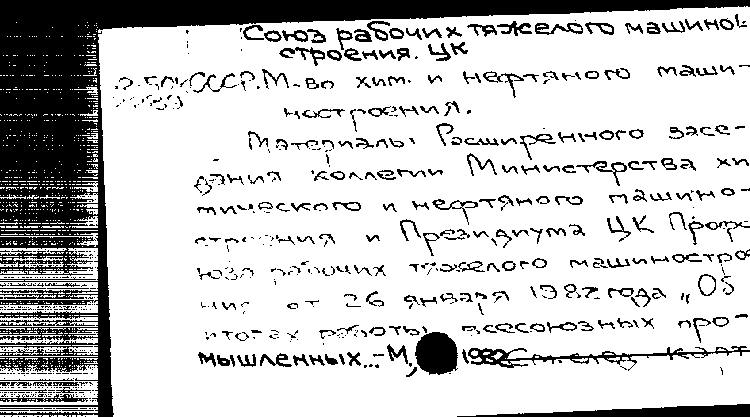 Союз рабочих тяжелого машино-
строения. ЦК
СССР. М-во хим. и нефтяного маши-
ностроения.
Материалы Расширенного засе-
дания коллегии Министерства хи
мического и нефтяного машино-
строения и Президиума ЦК Профсо
юза рабочих тяжелого машинострое
ния от 26 января 1982 года „Об
итогах работы всесоюзных про-
мышленных...- М., 1982 См. след. карт